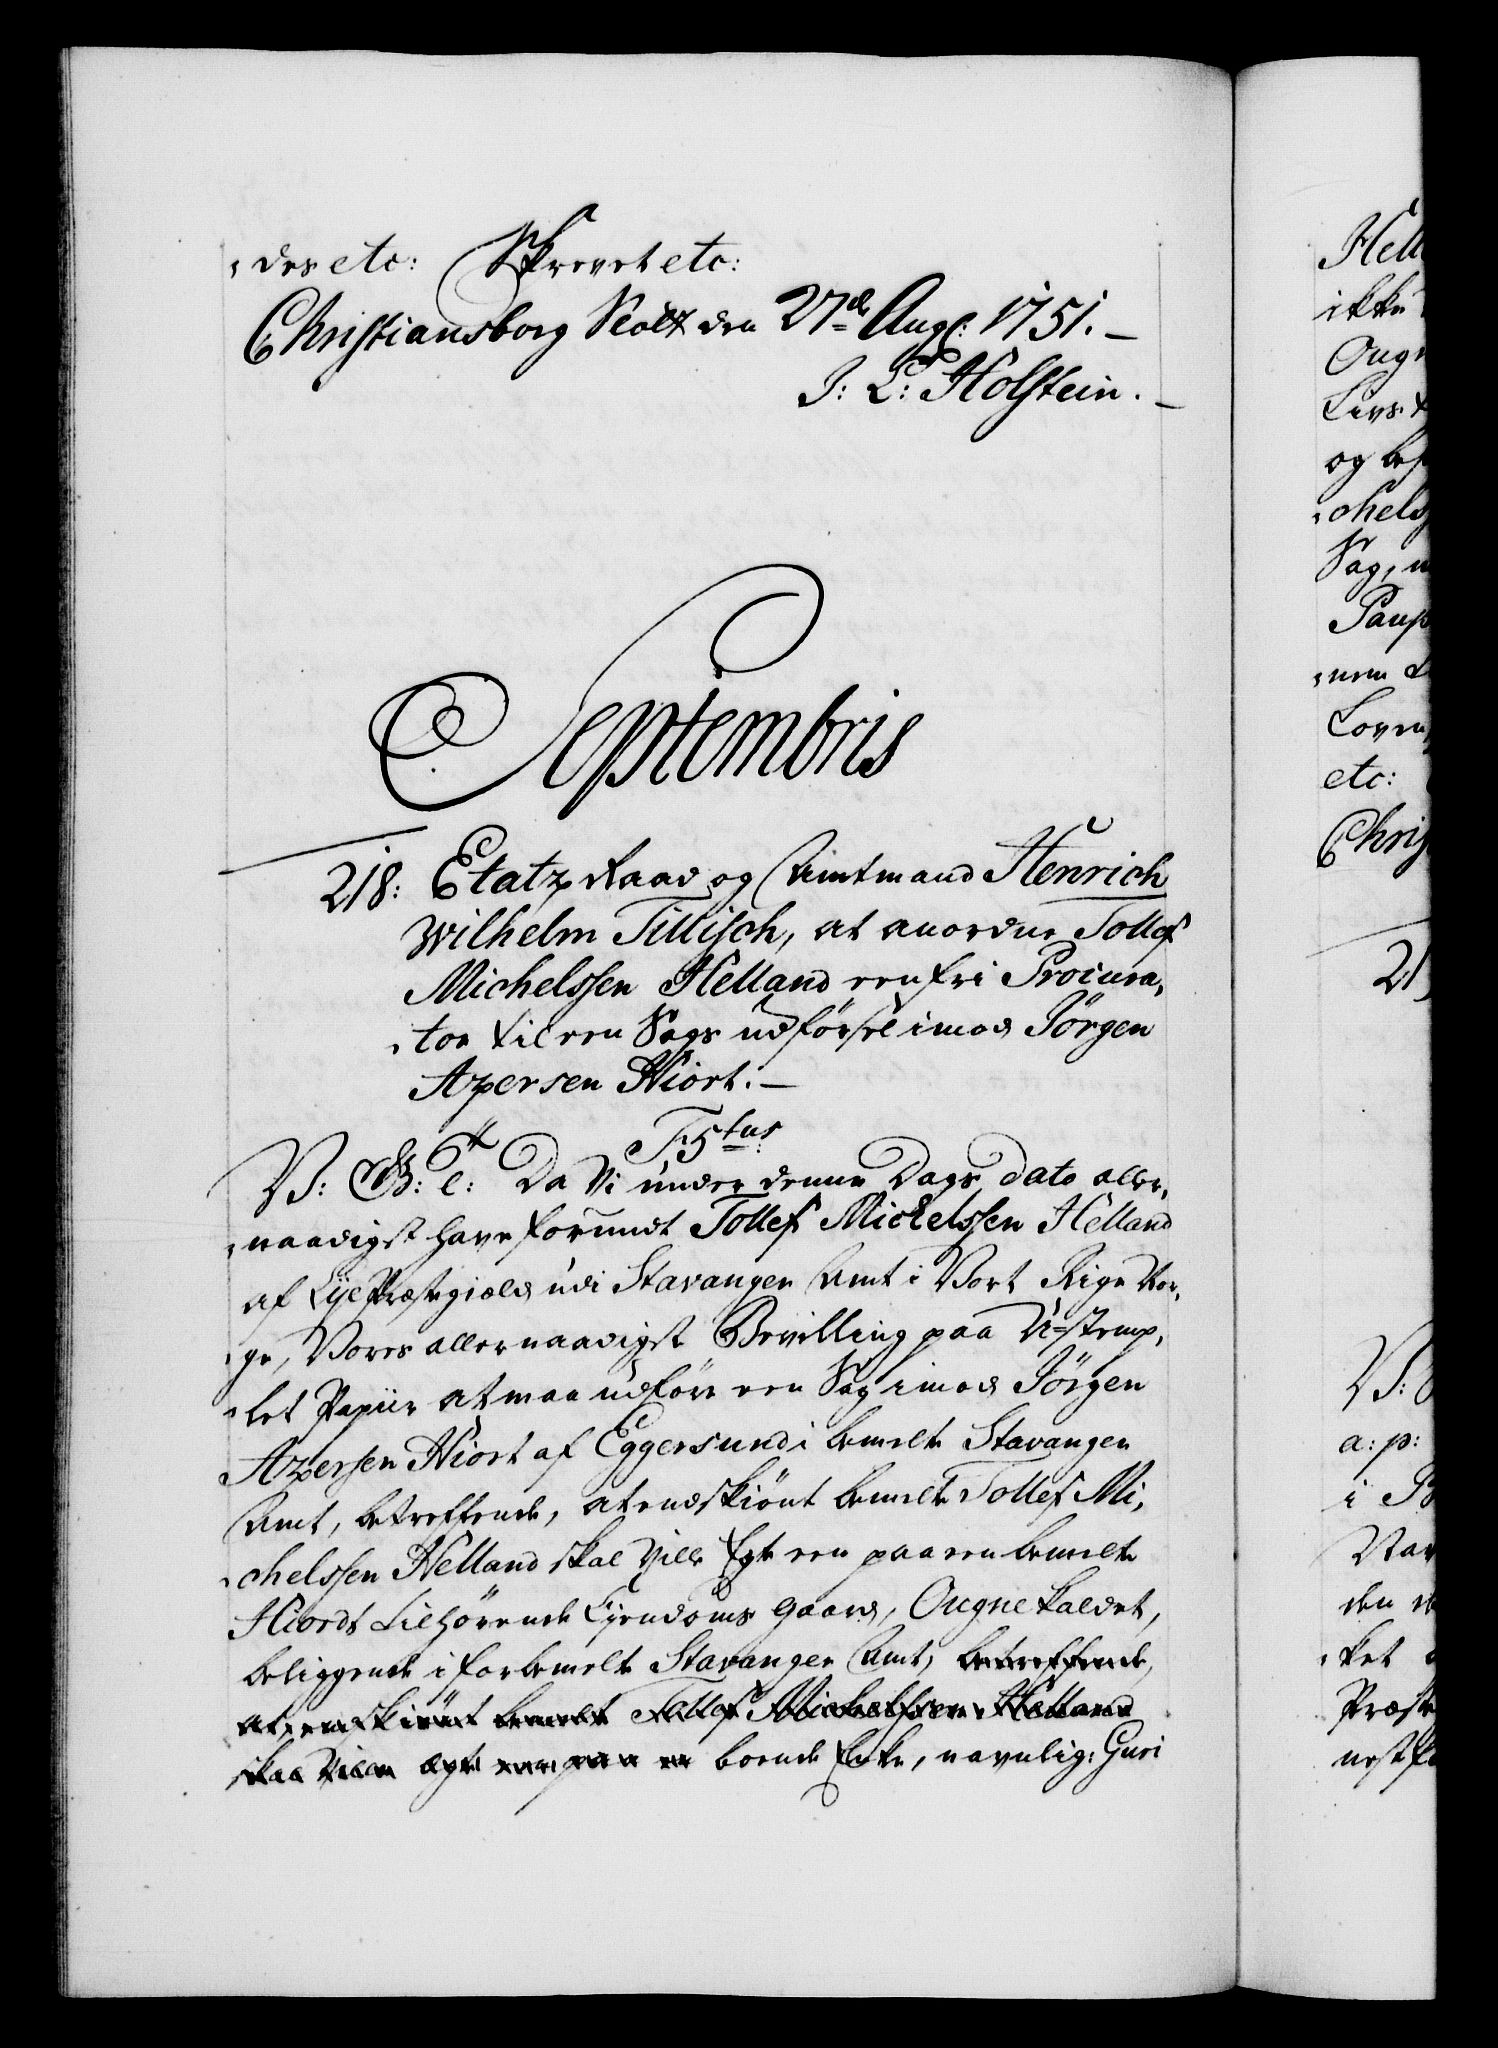 des etc: Skrevet etc:
Christiansborg Slott den 27de Aug: 1751.
J: L: Holstein.
Septembris
218: Etatz Raad og Amtmand Henrich
Wilhelm Tillisch, at anordne Tollef
Michelssen Helland een fri Procura,
tor til een Sags udförsel imod Jörgen
Azersen Hiort.
F. 5tus
V: G: t: Da Vi under denne Dags dato aller,
naadigst have forundt Tollef Michelssen Helland
af Lÿe Præstegield udi Stavanger Amt i Vort Rige Nor,
ge, Vores allernaadigst Bevilling paa U=stemp,
let Papiir at maa udföre een Sag imod Jörgen
Azersen Hiort af Eggersund i bemelte Stavanger
Amt, betreffende, at endskiönt bemelte Tollef Mi,
chelssen Helland skal ville Egte een paa een bemelte
Hiordt tilhörende Ejendoms gaard, Ougne kaldet,
beliggende i forbemelte Stavanger Amt, betreffende,
at endskiönt bemelte Tollef Michelssen Helland
skal ville egte een paa en boende Enke, navnlig: Guri
Hell
ikke
Ougn
Livs
og
chels
Sag,
Paup
nem
Loven
etc:
Chris
21
V:
a: p:
i
Nav
den
ket
Præste